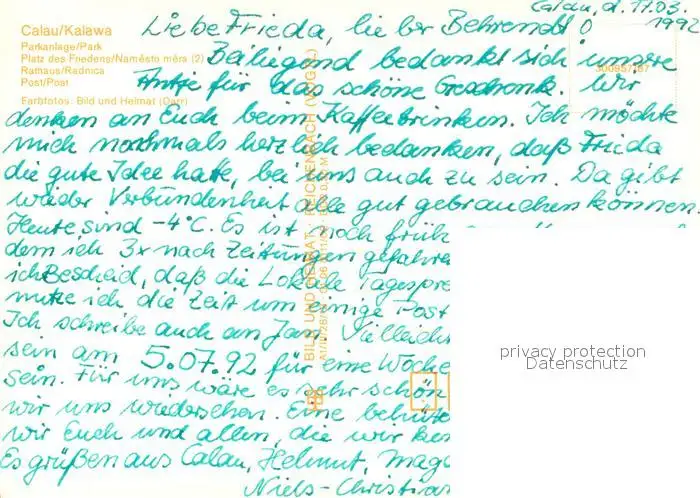 Calau, d. 17.03.
1992
Liebe Frieda, lieber Behrendt
Calau/Kalawa
Parkanlage/Park
Platz des Friedens/Naměsto měra (2)
Rathaus/Radnica
Post/Post
Farbfotos: Bild und Heimat (Darr)
Beiliegend bedankt sich unsere
Antje für das schöne Geschenk. Wir
denken an Euch beim Kaffeetrinken. Ich möchte
mich nochmals herzlich bedanken, daß Frieda
die gute Idee hatte, bei uns auch zu sein. Da gibt
wieder Verbundenheit alle gut gebrauchen können.
Heute sind -4°C. Es ist noch früh
dem ich 3x nach Zeitungen gefahre
ich Bescheid, daß die Lokale Tagespre
nutze ich die Zeit um einige Post
Ich schreibe auch an Jan. Vielleicht
sein am 5.07.92 für eine Woche
sein. Für uns wäre es sehr schön
wir uns wiedersehen. Eine behüte
wir Euch und allen, die wir
Es grüßen aus Calau, Helmut, Mag
Niels-Christian
BILD UND HEIMAT REICHENBACH (VOGTL.)
privacy protection
Datenschutz